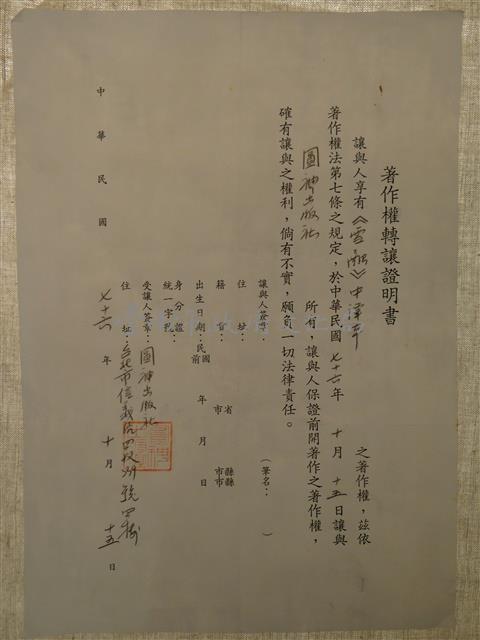 著作權轉讓證明書
讓與人享有《雪融》中譯本 之著作權，茲依
著作權法第七條之規定，於中華民國七十六年 十月 十五日讓與
圓神出版社 所有，讓與人保證前開著作之著作權，
確有讓與之權利，倘有不實，願負一切法律責任。
讓與人簽章： （筆名： ）
住址：
籍貫： 省市 縣縣市市
出生日期：民國前 年 月 日
身分證統一字號：
受讓人簽章：圓神出版社
住址：台北市信義路四段 號四樓
中華民國 七十六年 十月 十五日